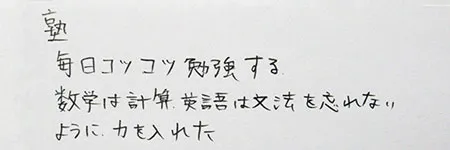 塾
毎日コツコツ勉強する.
数学は計算.英語は文法を忘れない
ように.力を入れた